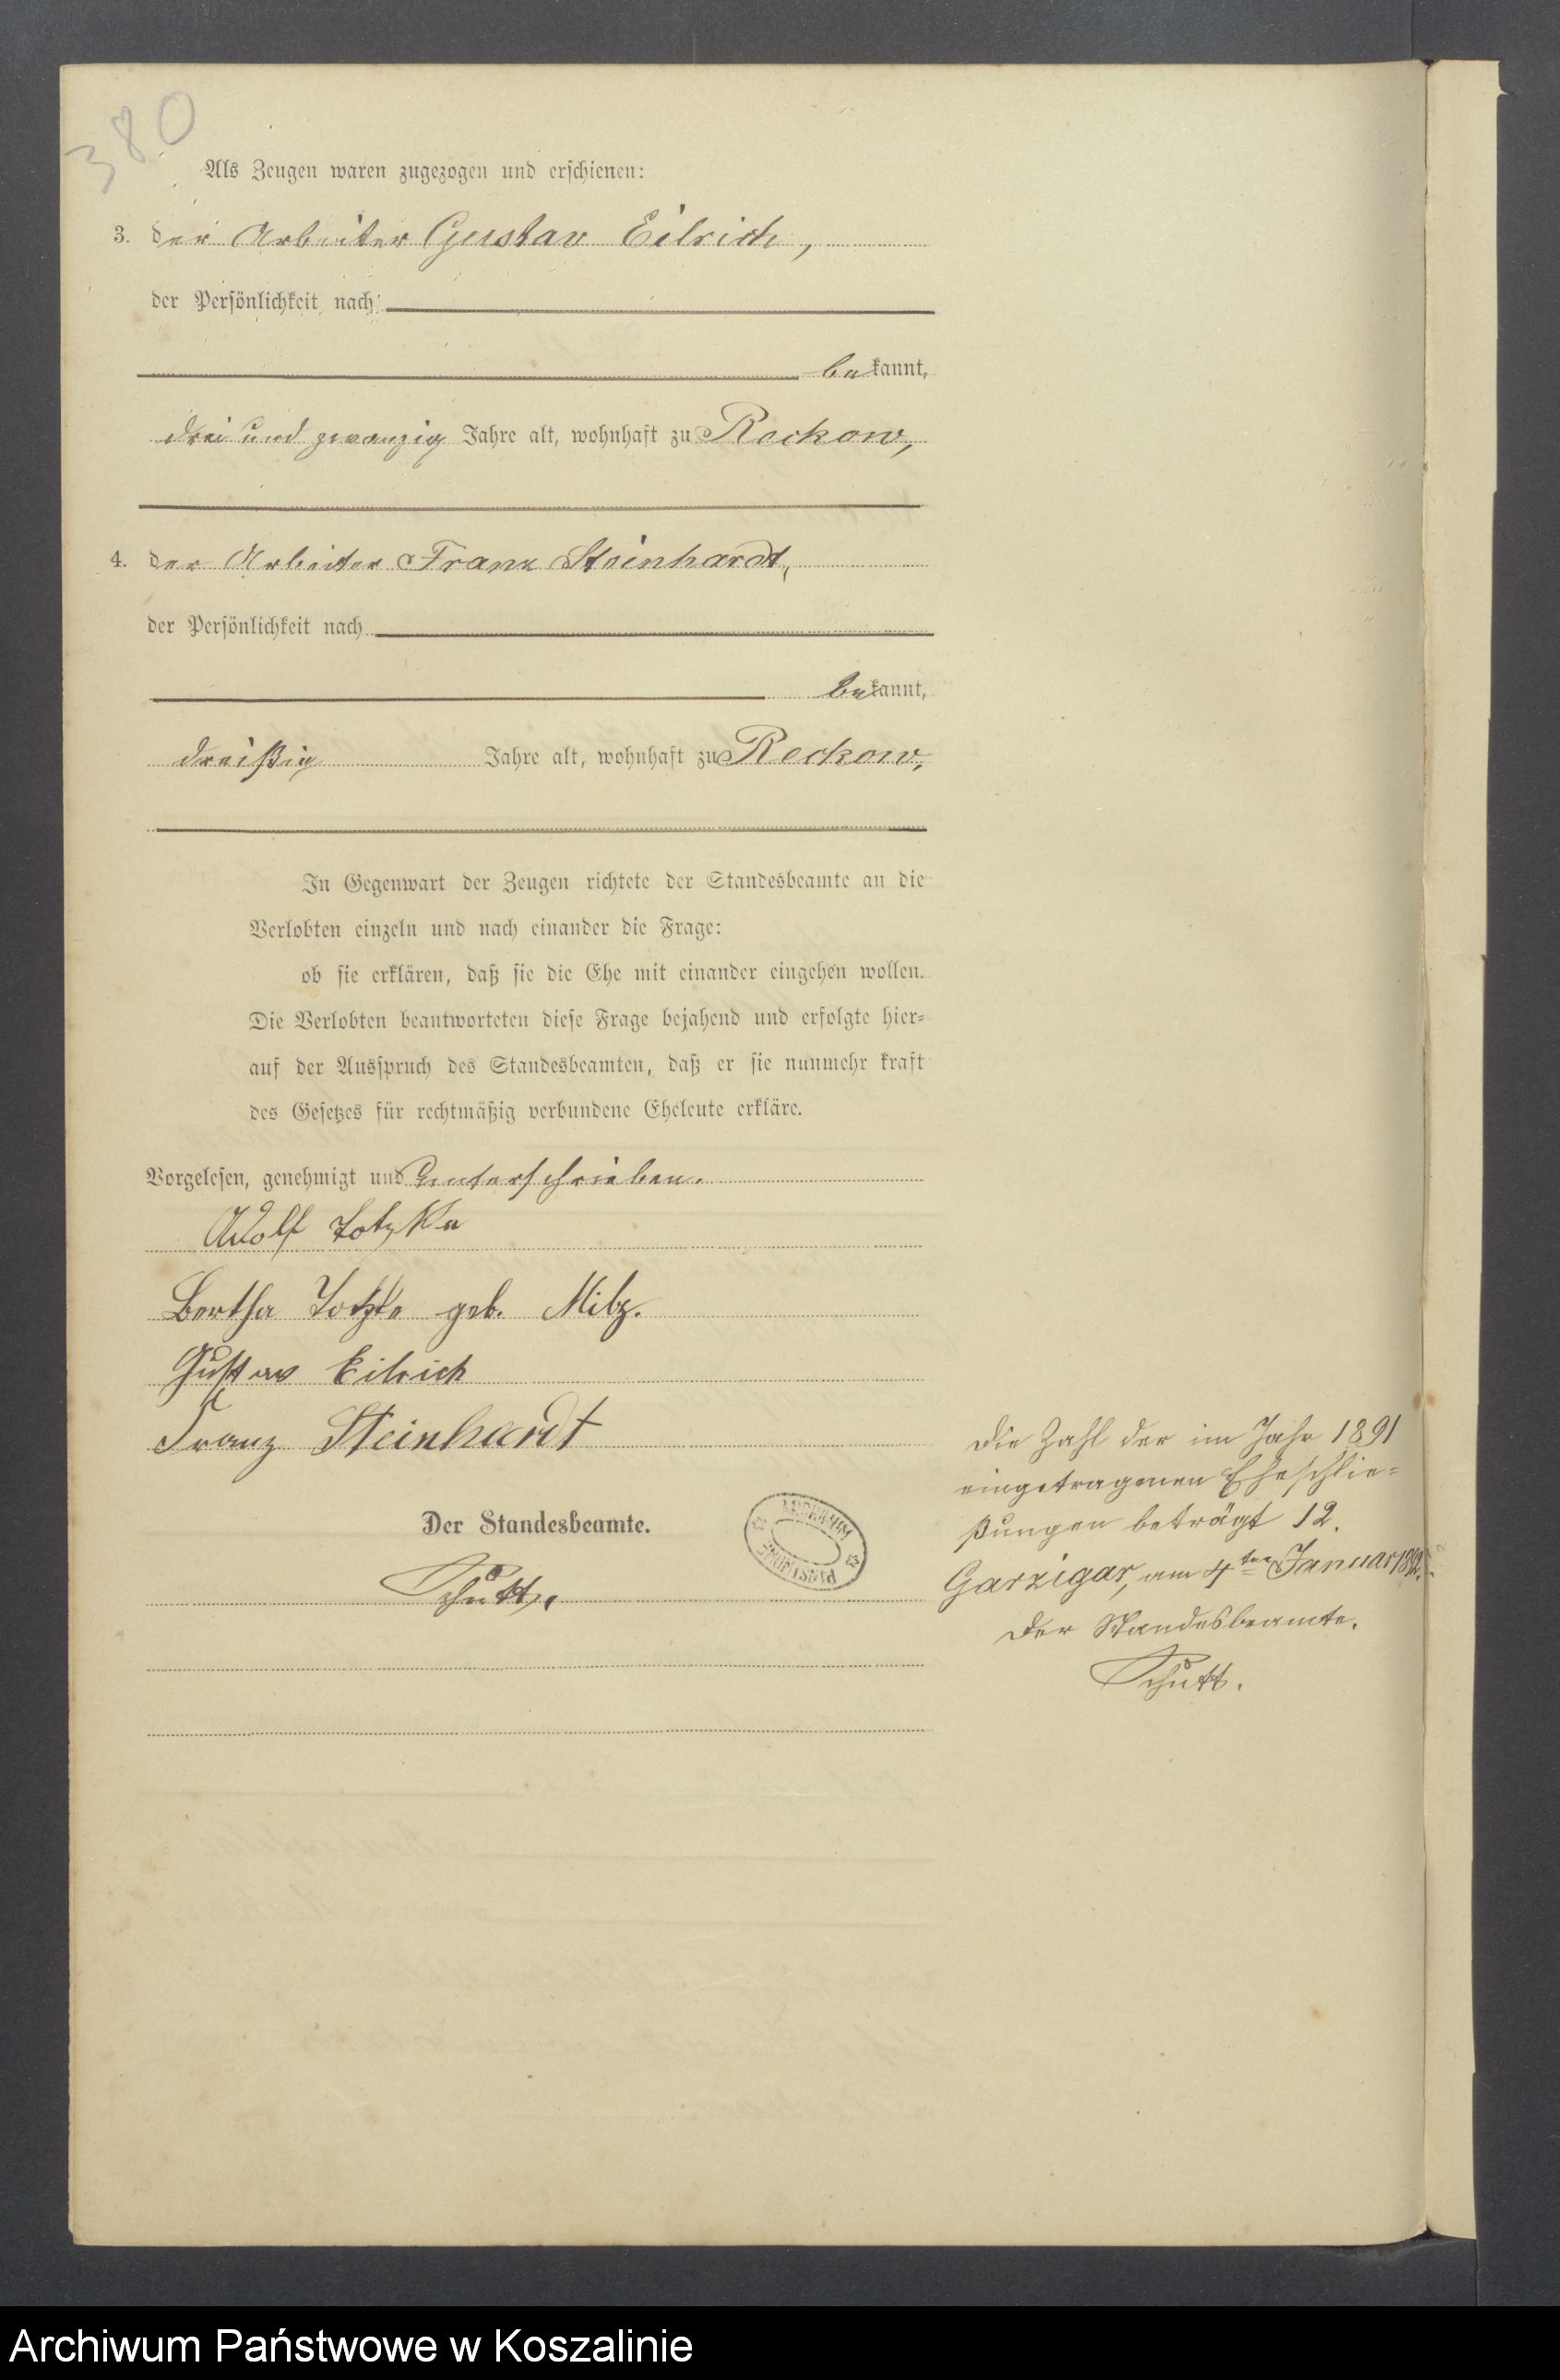 380
Als Zeugen waren zugezogen und erschienen:
3. der Arbeiter Gustav Eilrich,
der Persönlichkeit nach
bekannt,
drei und zwanzig Jahre alt, wohnhaft zu Reckow,
4. der Arbeiter Franz Steinhardt,
der Persönlichkeit nach
bekannt,
dreißig Jahre alt, wohnhaft zu Reckow,
In Gegenwart der Zeugen richtete der Standesbeamte an die
Verlobten einzeln und nach einander die Frage:
ob sie erklären, daß sie die Ehe mit einander eingehen wollen.
Die Verlobten beantworteten diese Frage bejahend und erfolgte hier-
auf der Ausspruch des Standesbeamten, daß er sie nunmehr kraft
des Gesetzes für rechtmäßig verbundene Eheleute erkläre.
Vorgelesen, genehmigt und unterschrieben.
Adolf Lotzke
Bertha Lotzke geb. Milz.
Gustav Eilrich
Franz Steinhardt
Der Standesbeamte.
Schutt.
ARCHIWUM PAŃSTWOWE
Die Zahl der im Jahr 1891
eingetragenen Eheschlie-
ßungen beträgt 12.
Garzigar, am 4ten Januar 1892.
Der Standesbeamte.
Schutt.
Archiwum Państwowe w Koszalinie